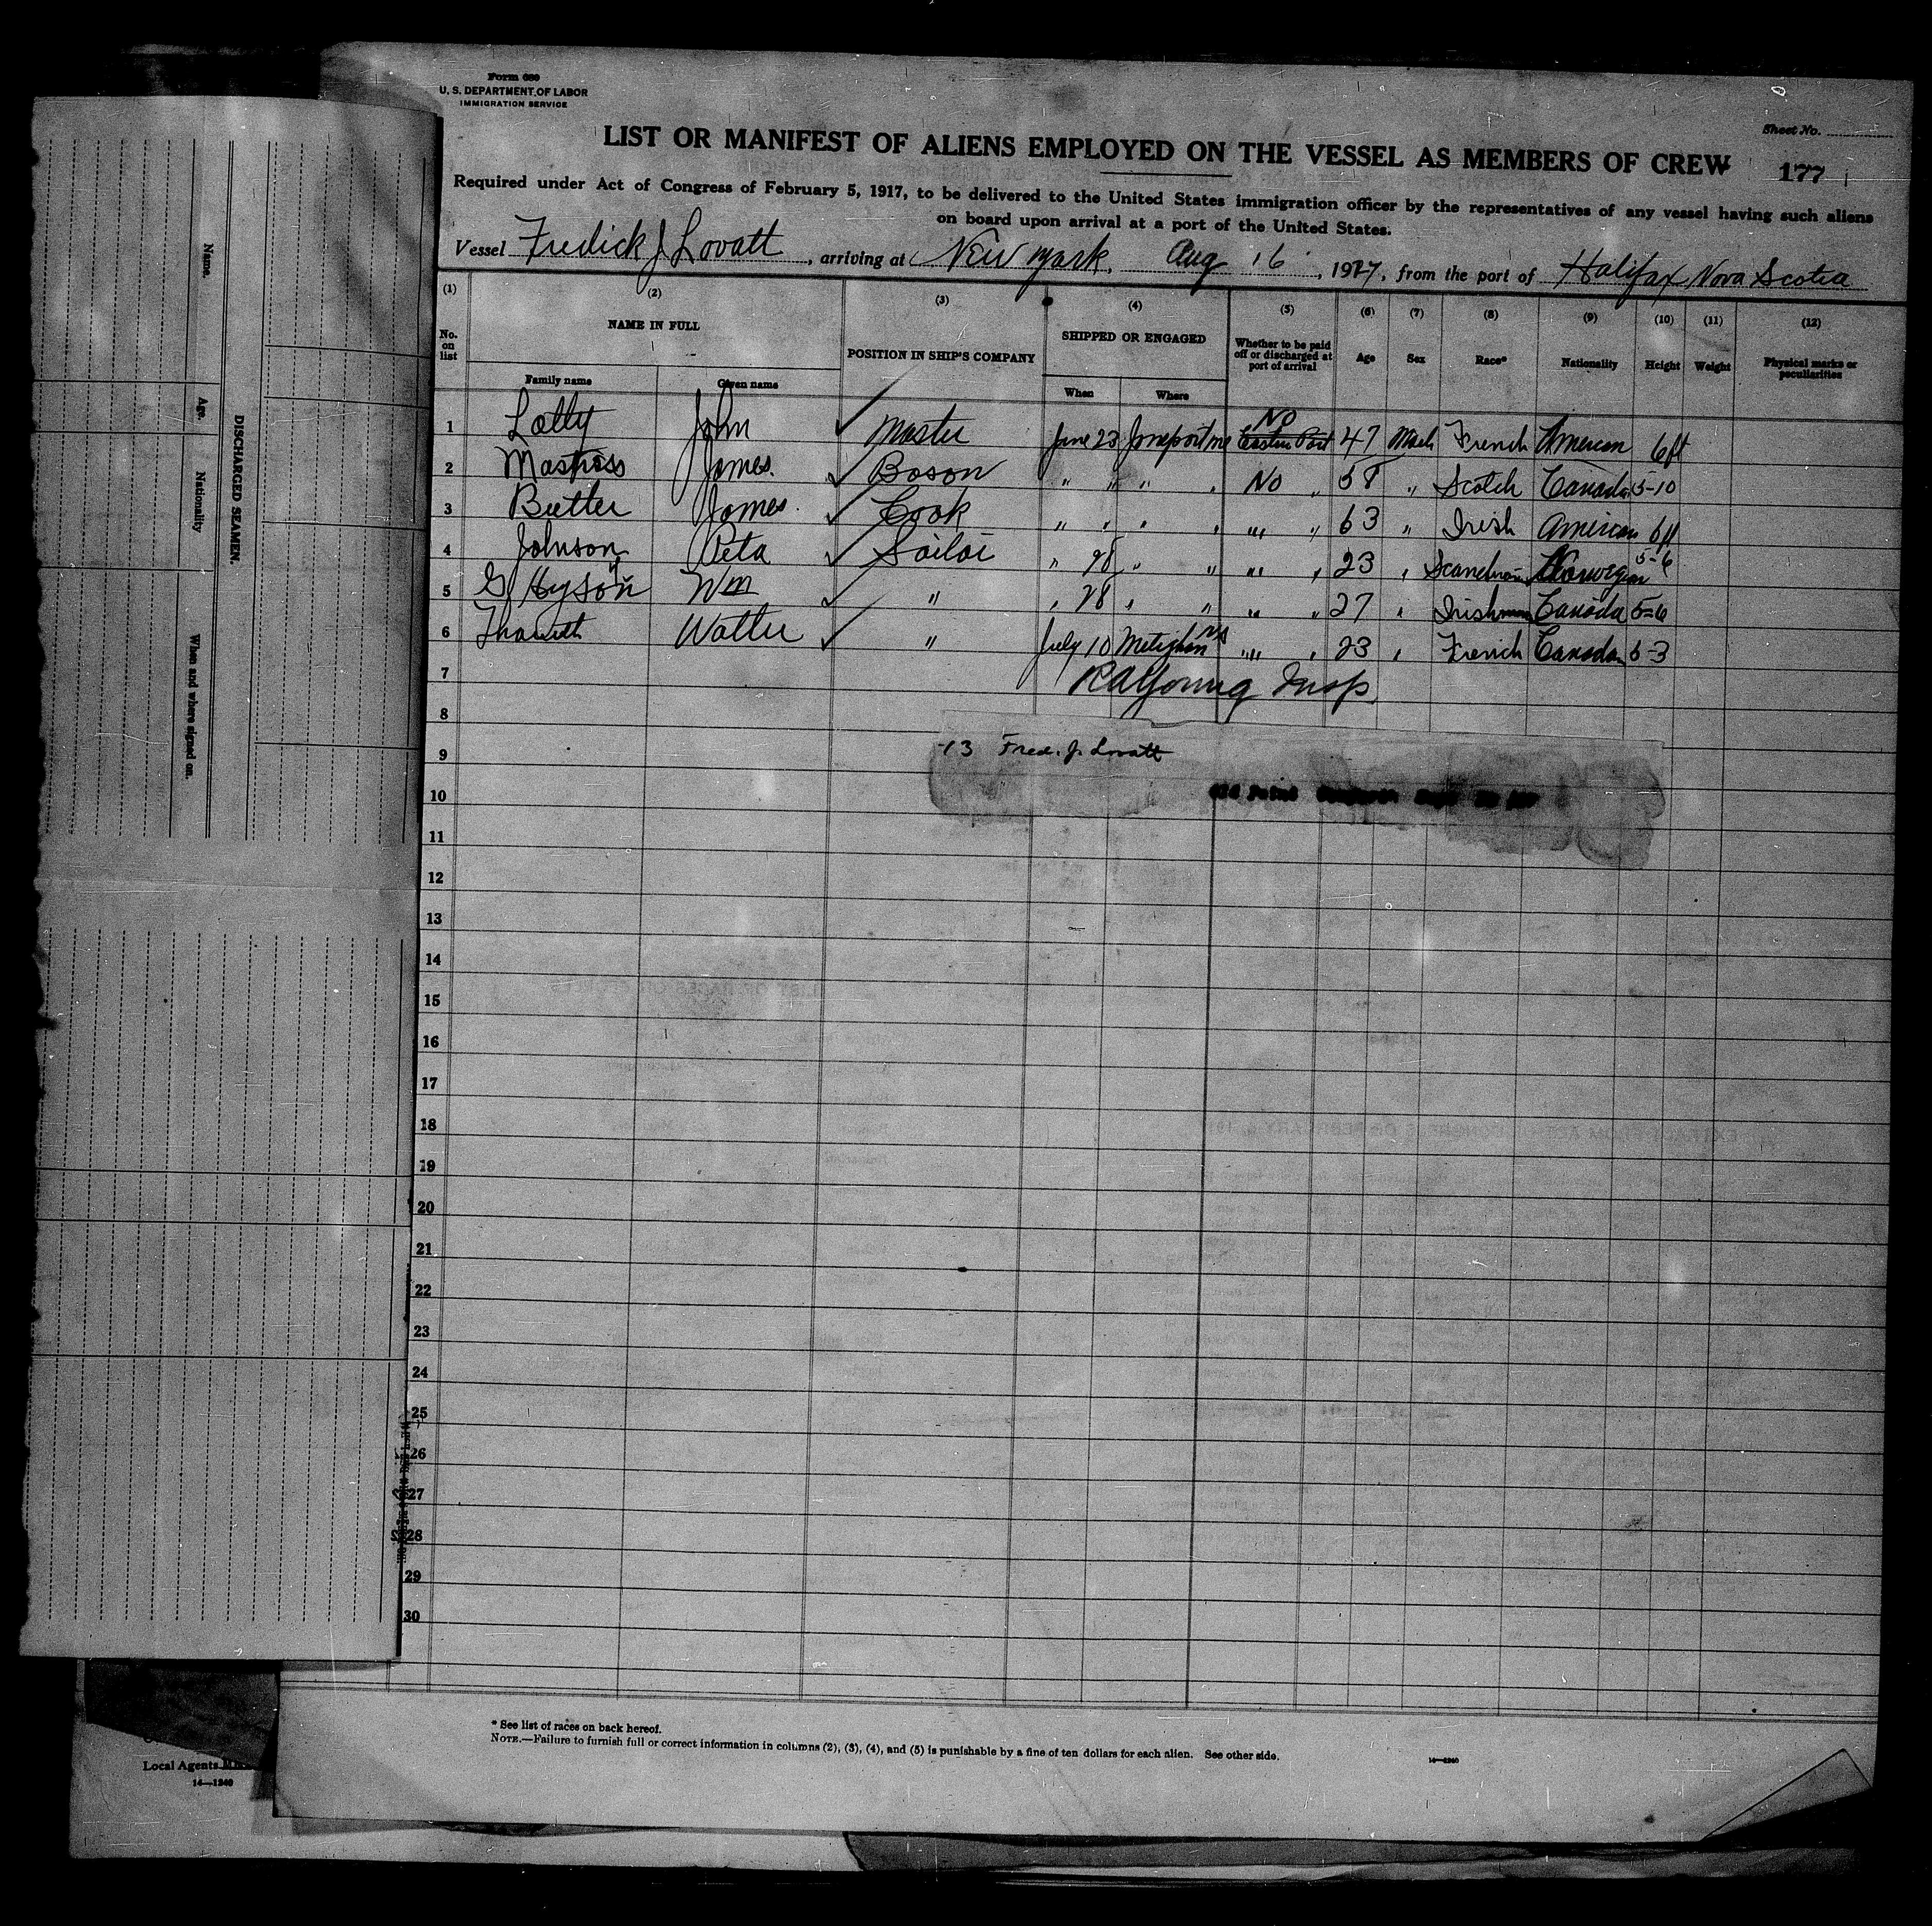 Form 680
U. S. DEPARTMENT OF LABOR
IMMIGRATION SERVICE
Sheet No.
LIST OR MANIFEST OF ALIENS EMPLOYED ON THE VESSEL AS MEMBERS OF CREW 177
Required under Act of Congress of February 5, 1917, to be delivered to the United States immigration officer by the representatives of any vessel having such aliens
on board upon arrival at a port of the United States.
Vessel Fredick J Lovatt, arriving at New York, Aug 16, 1917, from the port of Halifax Nova Scotia
(1) (2) (3) (4) (5) (6) (7) (8) (9) (10) (11) (12)
No. on list NAME IN FULL POSITION IN SHIP'S COMPANY SHIPPED OR ENGAGED Whether to be paid off or discharged at port of arrival Age Sex Race* Nationality Height Weight Physical marks or peculiarities
Family name Given name When Where
1 Lolly John Master June 23 Jonesport me No 47 Male French American 6ft
2 James Boson " " " " No " 58 " Scotch Canada 5-10
3 Butler James Cook " " " " " " 63 " Irish American 6ft
4 Johnson Peta Sailor " 28 " " " " 23 " Norwegian 5-6
5 Hyson Wm " " 28 " " " " 27 " Irish Canada 5-6
6 Walter " July 10 Metighan NS " " 23 " French Canada 5-3
7 RA Young Insp
8
9 13 Fred. J. Lovatt
10
11
12
13
14
15
16
17
18
19
20
21
22
23
24
25
26
27
28
29
30
* See list of races on back hereof.
NOTE.—Failure to furnish full or correct information in columns (2), (3), (4), and (5) is punishable by a fine of ten dollars for each alien. See other side.
14—1240
DISCHARGED SEAMEN.
Name.
Age.
Nationality
When and where signed on.
Local Agents
14—1240